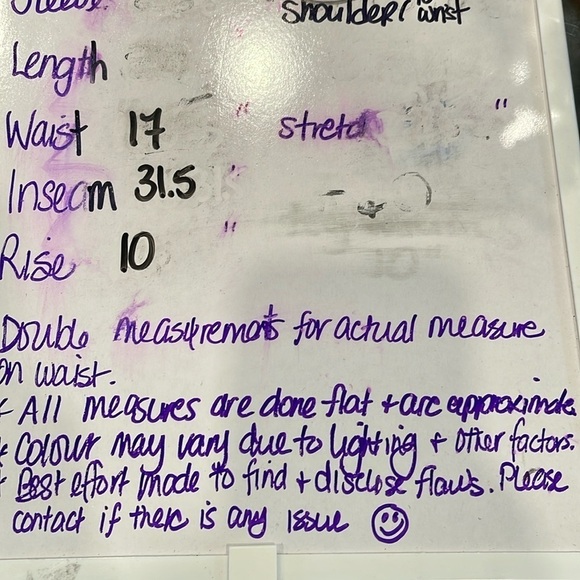 Sleeve. " shoulder/wrist
Length
Waist 17 " stretch "
Inseam 31.5 "
Rise 10 "
Double measurements for actual measure
on waist.
* All measures are done flat + are approximate.
* Colour may vary due to lighting + other factors.
* Best effort made to find + disclose flaws. Please
contact if there is any issue ☺